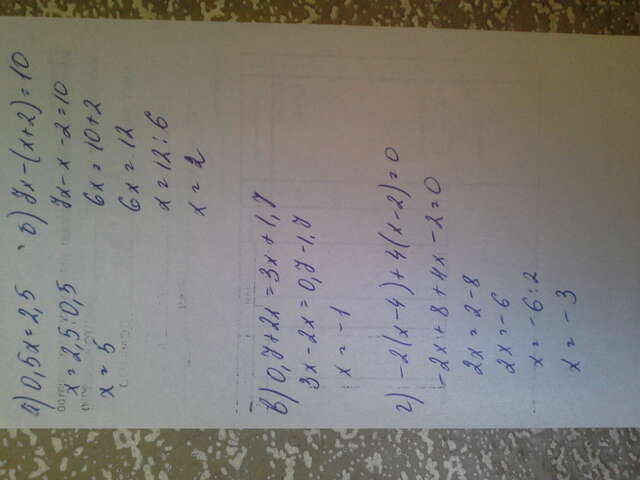 а) 0,5x=2,5
x=2,5:0,5
x=5
б) 7x-(x+2)=10
7x-x-2=10
6x=10+2
6x=12
x=12:6
x=2
в) 0,7+2x=3x+1,7
3x-2x=0,7-1,7
x=-1
г) -2(x-4)+4(x-2)=0
-2x+8+4x-2=0
2x=2-8
2x=-6
x=-6:2
x=-3